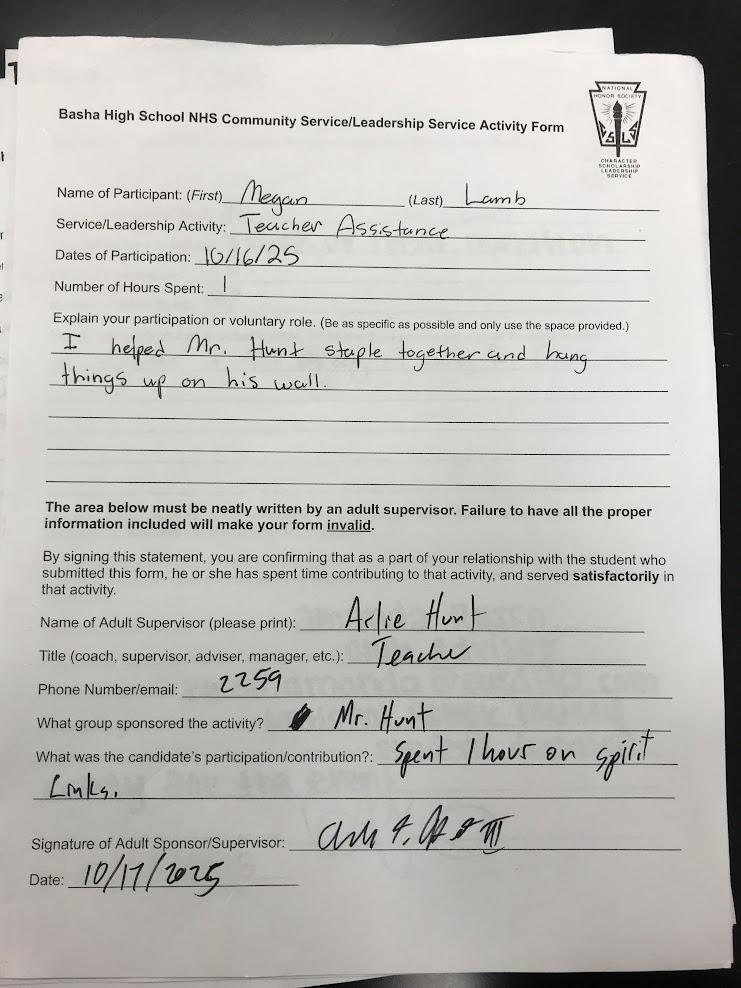 NATIONAL
HONOR SOCIETY
S L S
CHARACTER
SCHOLARSHIP
LEADERSHIP
SERVICE
Basha High School NHS Community Service/Leadership Service Activity Form
Name of Participant: (First) Megan (Last) Lamb
Service/Leadership Activity: Teacher Assistance
Dates of Participation: 10/16/25
Number of Hours Spent: 1
Explain your participation or voluntary role. (Be as specific as possible and only use the space provided.)
I helped Mr. Hunt staple together and hang
things up on his wall.
The area below must be neatly written by an adult supervisor. Failure to have all the proper
information included will make your form invalid.
By signing this statement, you are confirming that as a part of your relationship with the student who
submitted this form, he or she has spent time contributing to that activity, and served satisfactorily in
that activity.
Name of Adult Supervisor (please print): Arlie Hunt
Title (coach, supervisor, adviser, manager, etc.): Teacher
Phone Number/email: 2259
What group sponsored the activity? Mr. Hunt
What was the candidate's participation/contribution?: Spent 1 hour on spirit
Links.
Signature of Adult Sponsor/Supervisor:
Date: 10/17/2025